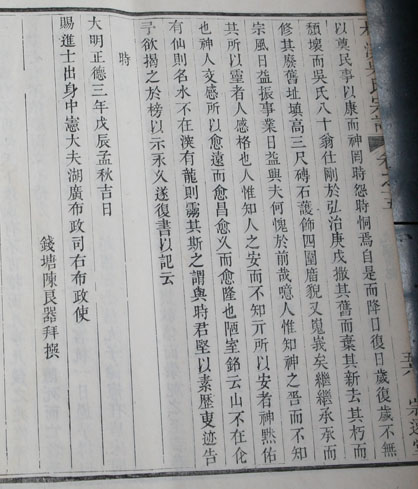 以奠民事以康而神罔時怨時恫焉自是而降日復日歲復歲不無
頹壞而吳氏八十翁仕剛於弘治庚戌撤其舊而棄其新去其朽而
修其廢舊址填高三尺磚石護飾四圍廟貌又嵬峩矣繼繼承承而
宗風日益振事業日益興夫何愧於前哉噫人惟知神之晋而不知
其所以靈者人感格也人惟知人之安而不知亓所以安者神黙佑
也神人交感所以愈遠而愈昌愈久而愈隆也陋室銘云山不在仚
有仙則名水不在深有龍則靈其斯之謂與時君堅以素歷東迹告
予欲揭之於榜以示永久遂復書以記云
時
大明正德三年戊辰孟秋吉日
賜進士出身中憲大夫湖廣布政司右布政使
錢塘陳良器拜撰